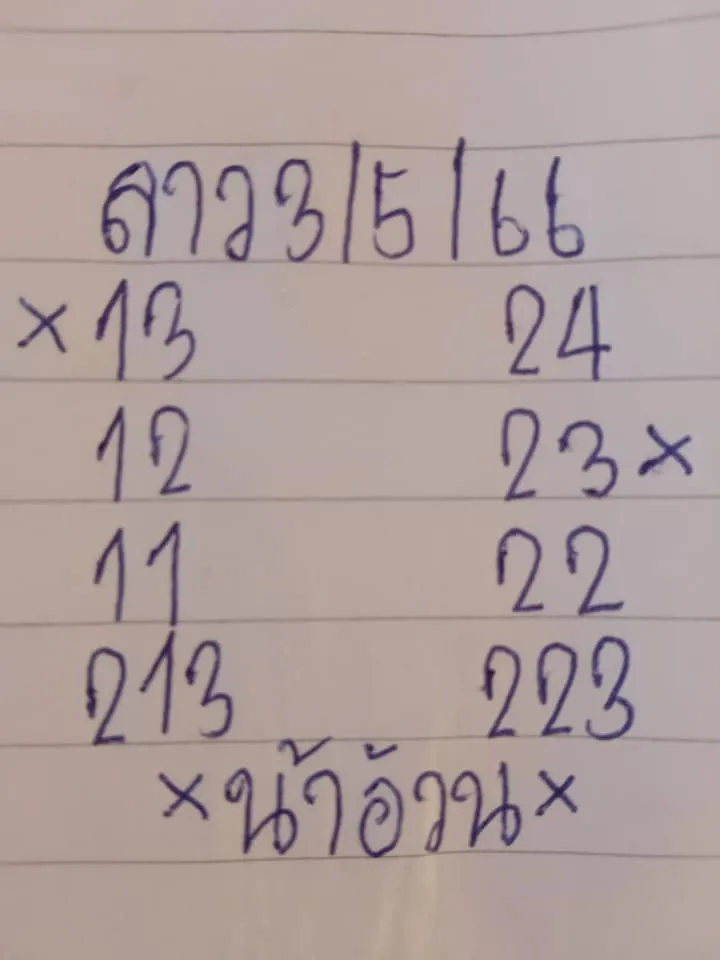 ลาว3/5/66
×13 24
12 23×
11 22
213 223
×น้าอ้วน×